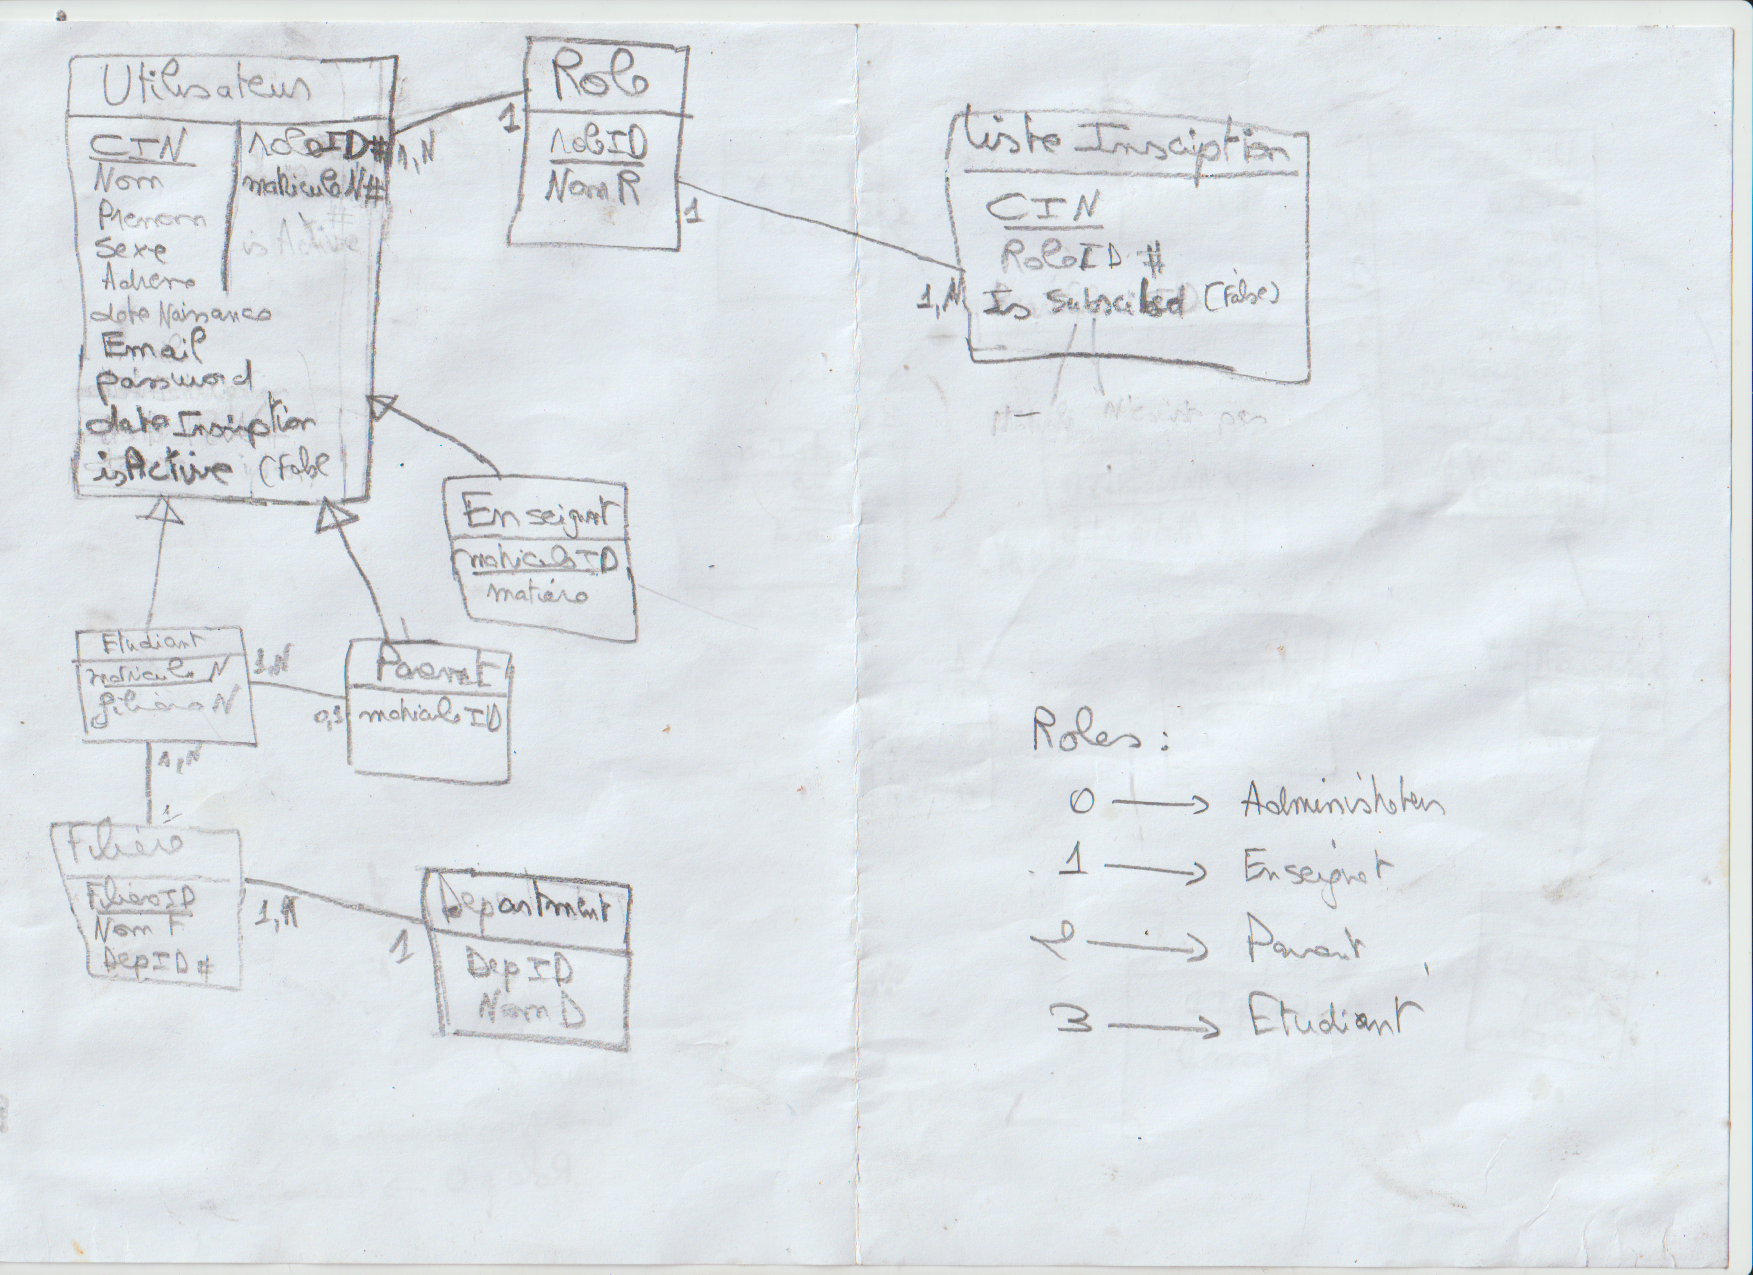 Utilisateur
CIN
Nom
Prenom
Sexe
Adresse
date Naissance
Email
password
date Inscription
isActive (False
roleID#
matriculeN#
isActive
1,N
1
Role
roleID
NomR
1
1,N
Liste Insciption
CIN
RoleID #
Is Subscribed (False)
Enseignant
matriculeID
matière
Etudiant
matricule N
filière N
1,N
0,1
Parent
matriculeID
1,N
1
Filière
FilièreID
Nom F
DepID#
1,N
1
Department
DepID
Nom D
Roles :
0 → Administrateur
1 → Enseignant
2 → Parent
3 → Etudiant